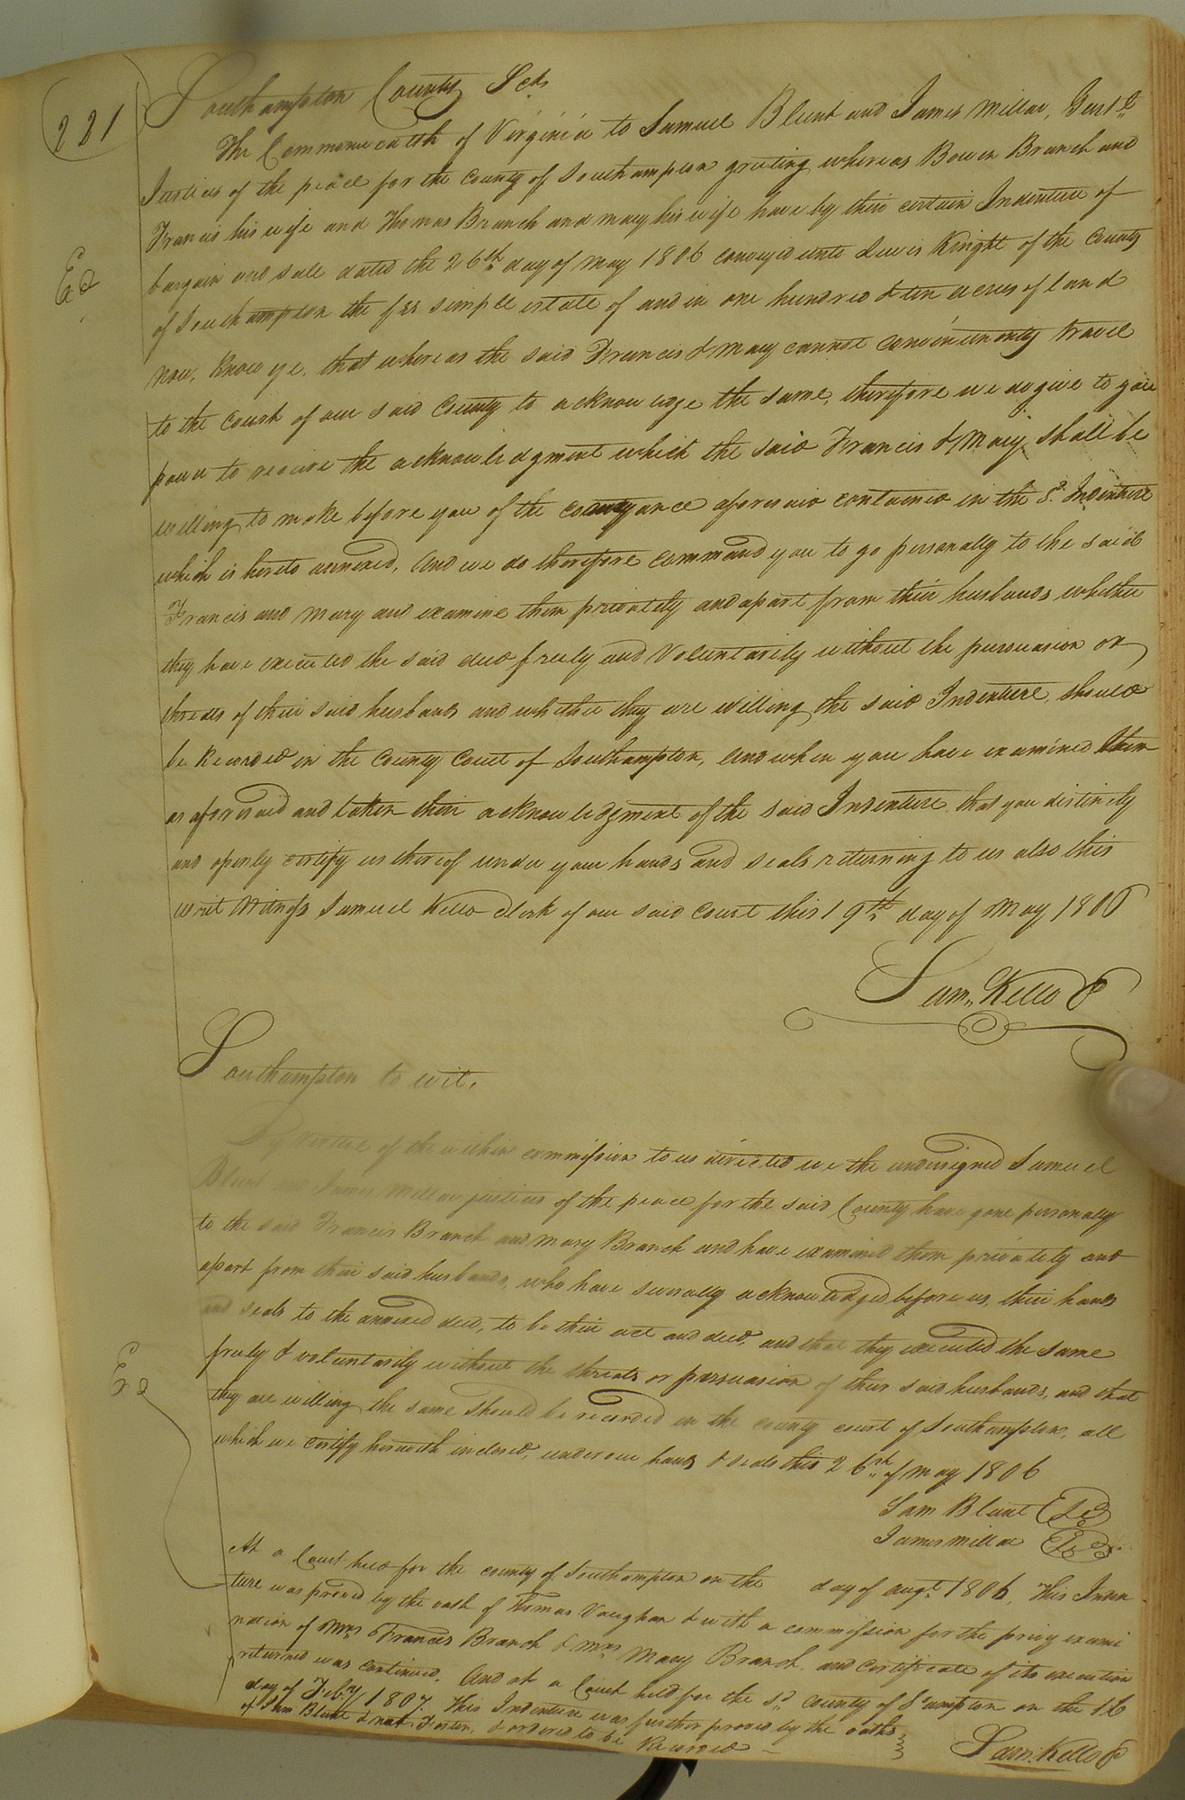 221
Southampton County Sct
The Commonwealth of Virginia to Samuel Blunt and James Millar, Gent
Justices of the peace for the County of Southampton greeting whereas Bowen Branch and
Francis his wife and Thomas Branch and mary his wife have by their certain Indenture of
bargain and sale dated the 26th day of May 1806 conveyed unto Lewis Knight of the County
Ed
of Southampton the fee simple estate of and in one hundred & ten acres of land
now, Know ye, that whereas the said Francis & Mary cannot conveniently travel
to the court of our said County to acknowledge the same, therefore we do give to you
power to receive the acknowledgment which the said Francis & Mary shall be
willing to make before you of the conveyance aforesaid contained in the sd. Indenture
which is hereto annexed, and we do therefore command you to go personally to the said
Francis and Mary and examine them privately and apart from their husbands whether
they have executed the said deed freely and Voluntarily without the persuasion or
threats of their said husbands and whether they are willing the said Indenture should
be Recorded in the County Court of Southampton, and when you have examined them
as aforesaid and taken their acknowledgment of the said Indenture that you distinctly
and openly certify us thereof under your hands and seals returning to us also this
writ Witness Samuel Kello Clerk of our said Court this 19th day of May 1806
Sam. Kello C
Southampton to wit,
By virtue of the within commission to us directed we the undersigned Samuel
Blunt and James Millar justices of the peace for the said County have gone personally
to the said Francis Branch and Mary Branch and have examined them privately and
apart from their said husbands, who have severally acknowledged before us, their hands
and seals to the annexed deed, to be their act and deed, and that they executed the same
freely & voluntarily without the threats or persuasion of their said husbands, and that
Ed
they are willing the same should be recorded in the county court of Southampton, all
which we certify herewith inclosed, under our hands & seals this 26th of May 1806
Sam Blunt
James Millar
At a Court held for the county of Southampton on the day of augt. 1806, This Inden
ture was proved by the oath of Thomas Vaughan & with a commission for the privy exami
nation of Mrs Francis Branch & Mrs Mary Branch, and certificate of its execution
returned was continued. And at a Court held for the sd. county of S'ampton on the 16
day of Feby 1807. This Indenture was further proved by the oaths
of Sam Blunt & Foster, & ordered to be Recorded
Sam. Kello C